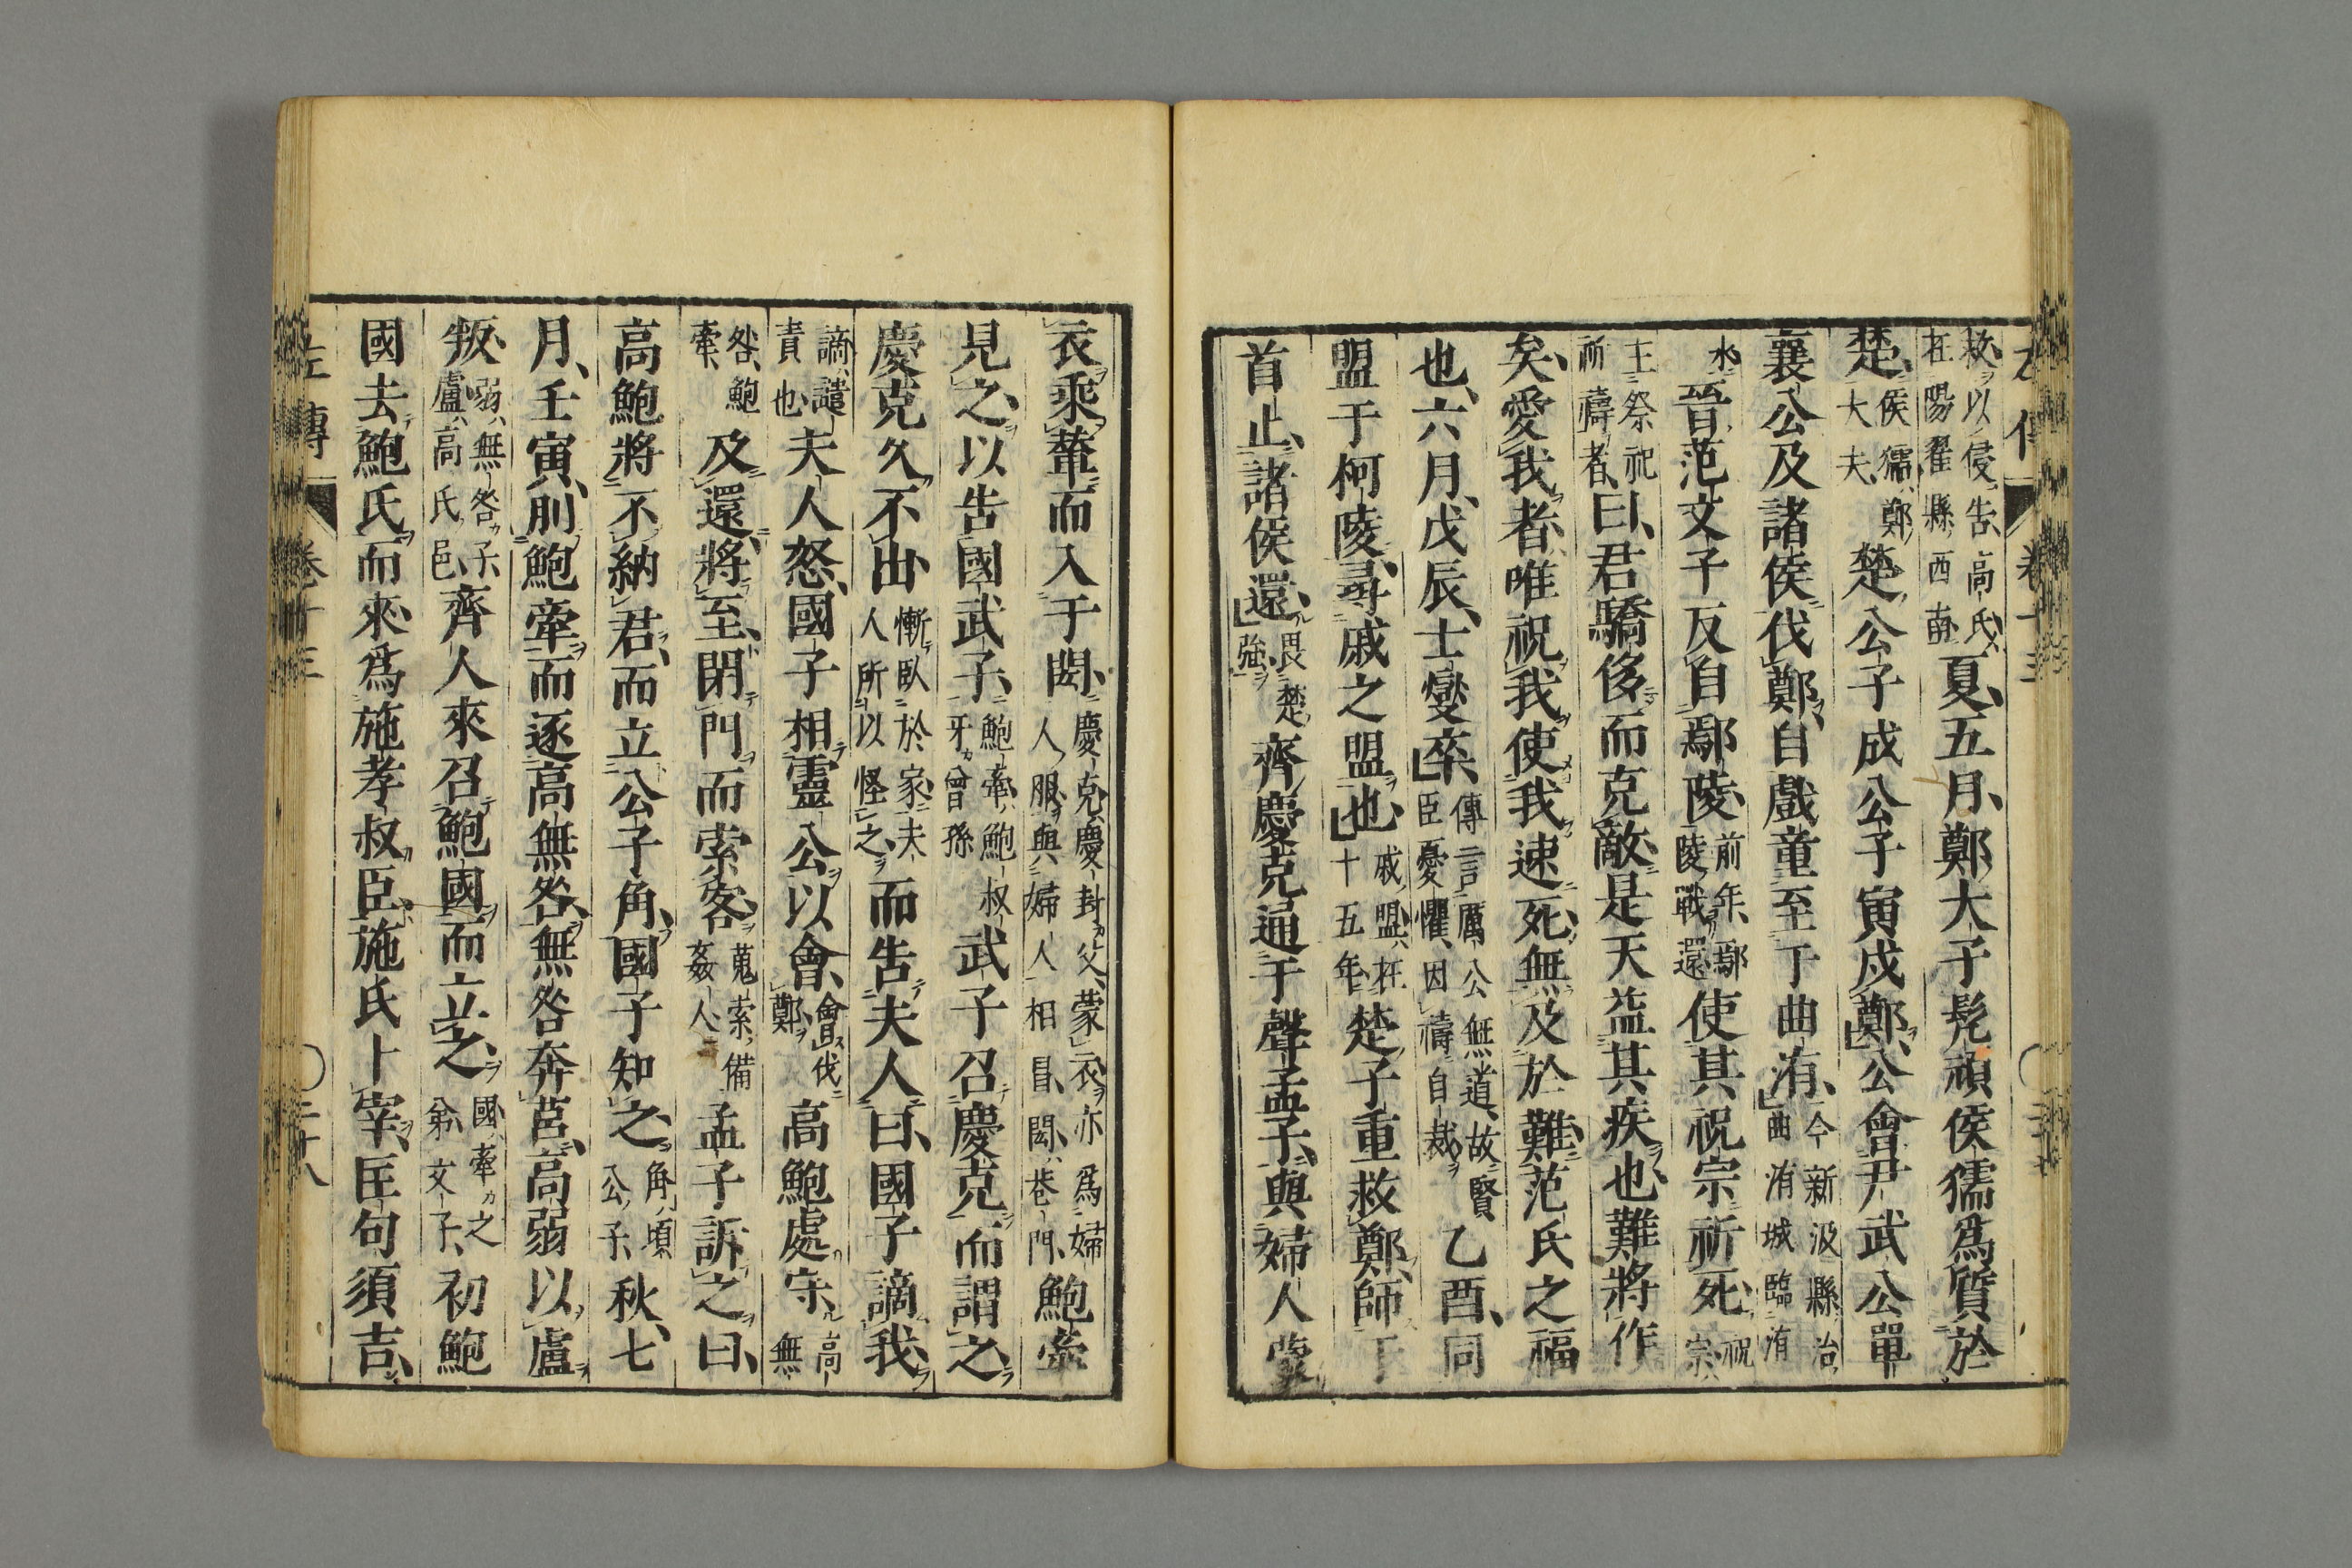 救以侵告高氏在陽翟縣西南夏五月鄭大子髡頑侯獳爲質於
楚侯獳鄭大夫楚公子成公子寅戍鄭公會尹武公單
襄公及諸侯伐鄭自戲童至于曲洧今新汲縣治曲洧城臨洧
水晉范文子反自鄢陵前年鄢陵戰還使其祝宗祈死祝宗
主祭祀祈禱者曰君驕侈而克敵是天益其疾也難將作
矣愛我者唯祝我使我速死無及於難范氏之福
也六月戊辰士燮卒傳言厲公無道故賢臣憂懼因禱自裁乙酉同
盟于柯陵尋戚之盟也戚盟在十五年楚子重救鄭師于
首止諸侯還畏楚強齊慶克通于聲孟子與婦人蒙
衣乘輦而入于閎慶克慶封父蒙衣亦爲婦人服與婦人相冒閎巷門鮑牽
見之以告國武子鮑牽鮑叔牙曾孫武子召慶克而謂之
慶克久不出慚臥於家夫人所以怪之而告夫人曰國子謫我
謫譴責也夫人怒國子相靈公以會會伐鄭高鮑處守高無
咎鮑牽及還將至閉門而索客蒐索備姦人孟子訴之曰
高鮑將不納君而立公子角國子知之角頃公子秋七
月壬寅刖鮑牽而逐高無咎無咎奔莒高弱以盧
叛弱無咎子盧高氏邑齊人來召鮑國而立之國牽之弟文子初鮑
國去鮑氏而來爲施孝叔臣施氏卜宰匡句須吉
左傳 卷十三 二十八